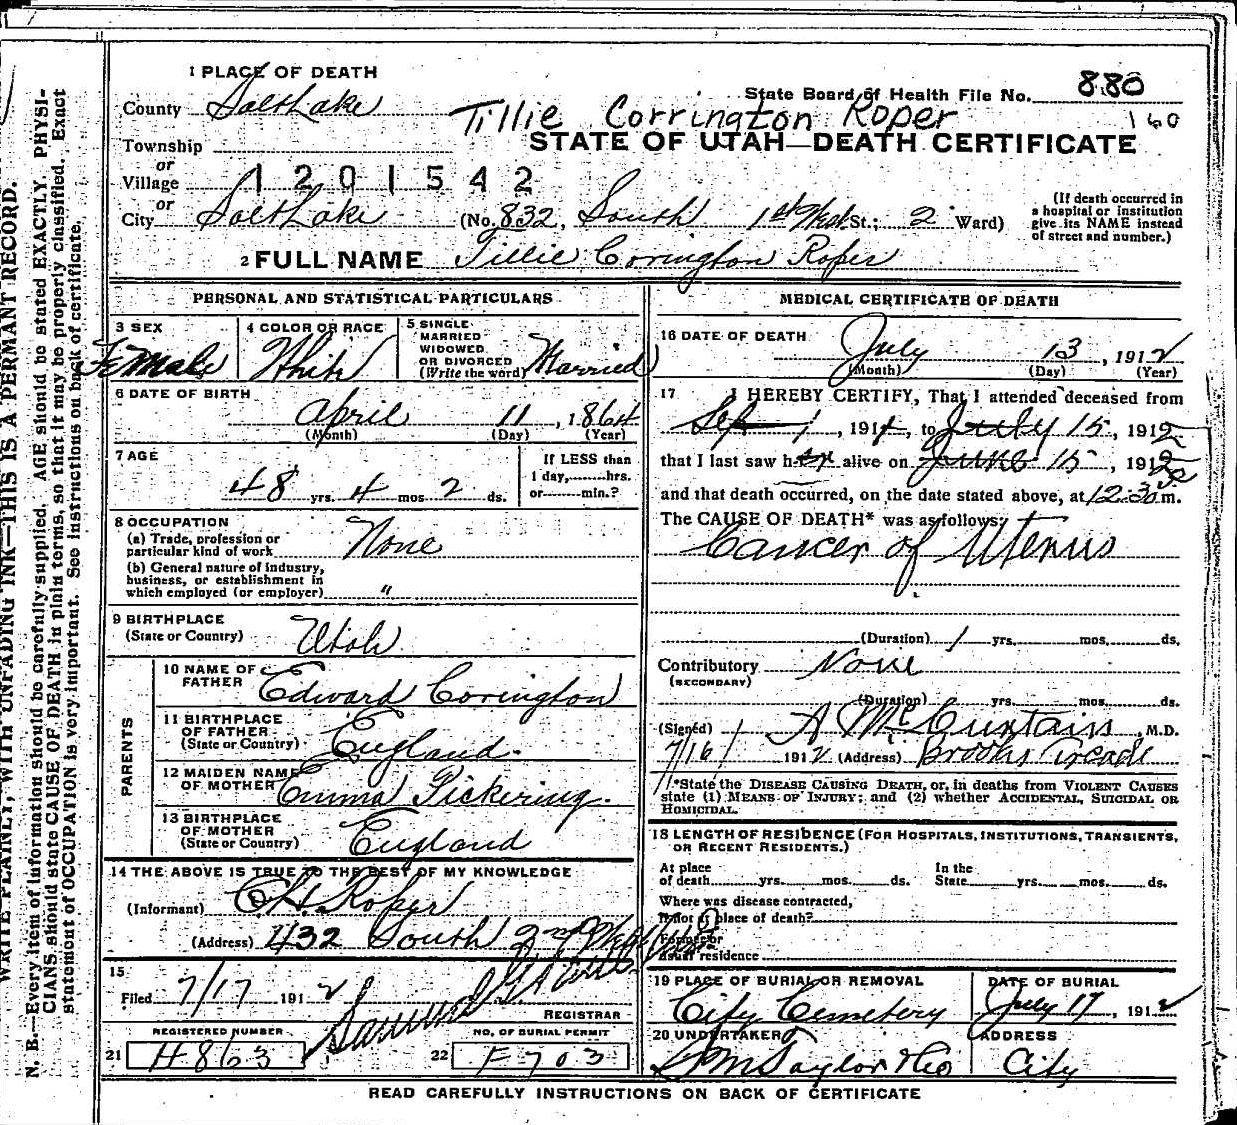 1 PLACE OF DEATH
County Salt Lake
State Board of Health File No. 880
160
Tillie Corrington Roper
Township
STATE OF UTAH—DEATH CERTIFICATE
or
Village
1201542
or
City Salt Lake (No. 832, South 1st West St.; 2 Ward)
(If death occurred in a hospital or institution give its NAME instead of street and number.)
2 FULL NAME Tillie Corington Roper
PERSONAL AND STATISTICAL PARTICULARS
3 SEX
Female
4 COLOR OR RACE
White
5 SINGLE
MARRIED
WIDOWED
OR DIVORCED
(Write the word) Married
6 DATE OF BIRTH
April 11, 1864
(Month) (Day) (Year)
7 AGE
48 yrs. 4 mos 2 ds.
If LESS than
1 day,........hrs.
or........min.?
8 OCCUPATION
(a) Trade, profession or
particular kind of work None
(b) General nature of industry,
business, or establishment in
which employed (or employer) "
9 BIRTHPLACE
(State or Country) Utah
PARENTS
10 NAME OF
FATHER Edward Corington
11 BIRTHPLACE
OF FATHER
(State or Country) England.
12 MAIDEN NAME
OF MOTHER Emma Pickering.
13 BIRTHPLACE
OF MOTHER
(State or Country) England
14 THE ABOVE IS TRUE TO THE BEST OF MY KNOWLEDGE
(Informant) C.H. Roper
(Address) 432 South 2nd
15
Filed 7/17 1912
REGISTRAR
REGISTERED NUMBER
21 H863
NO. OF BURIAL PERMIT
22 F703
MEDICAL CERTIFICATE OF DEATH
16 DATE OF DEATH
July 13, 1912
(Month) (Day) (Year)
17 I HEREBY CERTIFY, That I attended deceased from
Sep 1, 1911, to July 15, 1912
that I last saw her alive on June 15, 1912
and that death occurred, on the date stated above, at 12:30 m.
The CAUSE OF DEATH* was as follows:
Cancer of Uterus
(Duration) 1 yrs. mos. ds.
Contributory None
(SECONDARY)
(Duration) yrs. mos. ds.
(Signed) A McCuntain, M.D.
7/16 1912 (Address) Brooks Arcade
*State the DISEASE CAUSING DEATH, or, in deaths from VIOLENT CAUSES
state (1) MEANS OF INJURY; and (2) whether ACCIDENTAL, SUICIDAL OR
HOMICIDAL.
18 LENGTH OF RESIDENCE (FOR HOSPITALS, INSTITUTIONS, TRANSIENTS,
OR RECENT RESIDENTS.)
At place
of death yrs. mos. ds.
In the
State yrs. mos. ds.
Where was disease contracted,
if not at place of death?
Former or
usual residence
19 PLACE OF BURIAL OR REMOVAL
City Cemetery
DATE OF BURIAL
July 17, 1912
20 UNDERTAKER
S M Taylor & Co
ADDRESS
City
READ CAREFULLY INSTRUCTIONS ON BACK OF CERTIFICATE
WRITE PLAINLY, WITH UNFADING INK—THIS IS A PERMANT RECORD.
N. B.—Every item of information should be carefully supplied. AGE should be stated EXACTLY. PHYSI-
CIANS should state CAUSE OF DEATH in plain terms, so that it may be properly classified. Exact
statement of OCCUPATION is very important. See instructions on back of certificate.